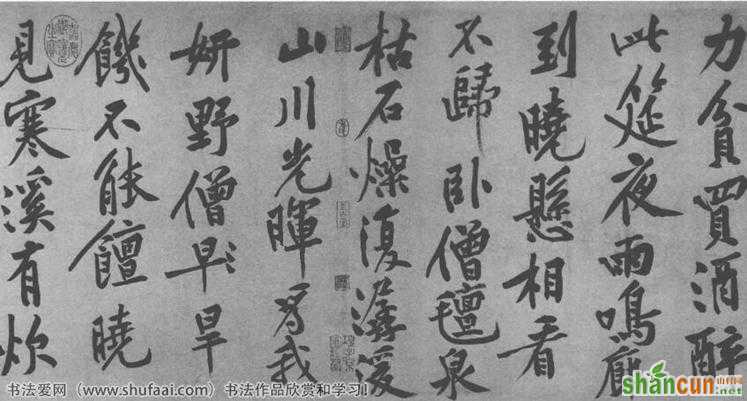 力貧買酒醉
此筵夜雨鳴廊
到曉懸相看
不歸卧僧氊泉
枯石燥復潺湲
山川光暉為我
妍野僧早旱
饑不能饘曉
見寒溪有炊
书法爱网（www.shufaai.com）书法作品欣赏和学习！
shancun
.net